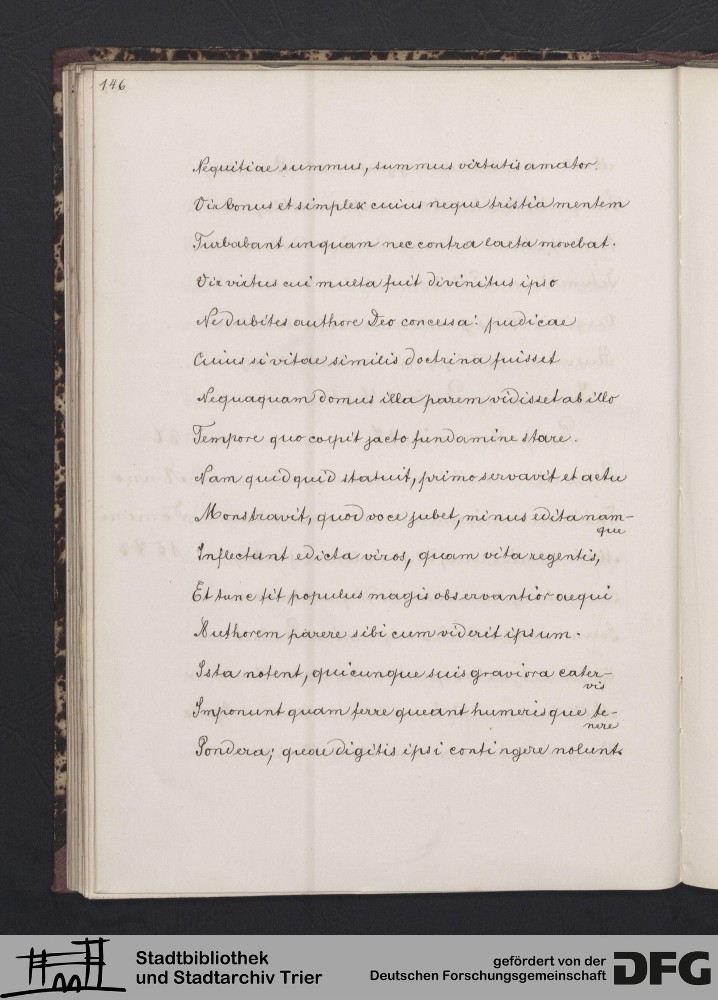 146
Nequitiae summus, summus virtutis amator.
Vir bonus et simplex cuius neque tristia mentem
Turbabant unquam nec contra laeta movebat.
Vir virtus cui multa fuit divinitus ipso
Ne dubites authore Deo concessa: pudicae
Cuius si vitae similis doctrina fuisset
Nequaquam domus illa parem vidisset ab illo
Tempore quo coepit jacto fundamine stare.
Nam quidquid statuit, primo servavit et actu
Monstravit, quod voce jubet, minus edita nam-
que
Inflectunt edicta viros, quam vita regentis,
Et tunc fit populus magis observantior aequi
Authorem parere sibi cum viderit ipsum.
Ista notent, quicunque suis graviora cater-
vis
Imponunt quam ferre queant humerisque te-
nere
Pondera; quae digitis ipsi contingere nolunt.
Stadtbibliothek
und Stadtarchiv Trier
gefördert von der
Deutschen Forschungsgemeinschaft
DFG